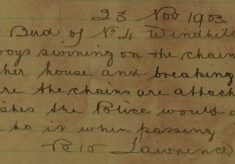 23 Nov 1903
Bird of No 4 Windhill
boys swinging on the chain
her house and breaking
re the chains are attach
shes the Police would
to it when passing
R 15 Lawrence